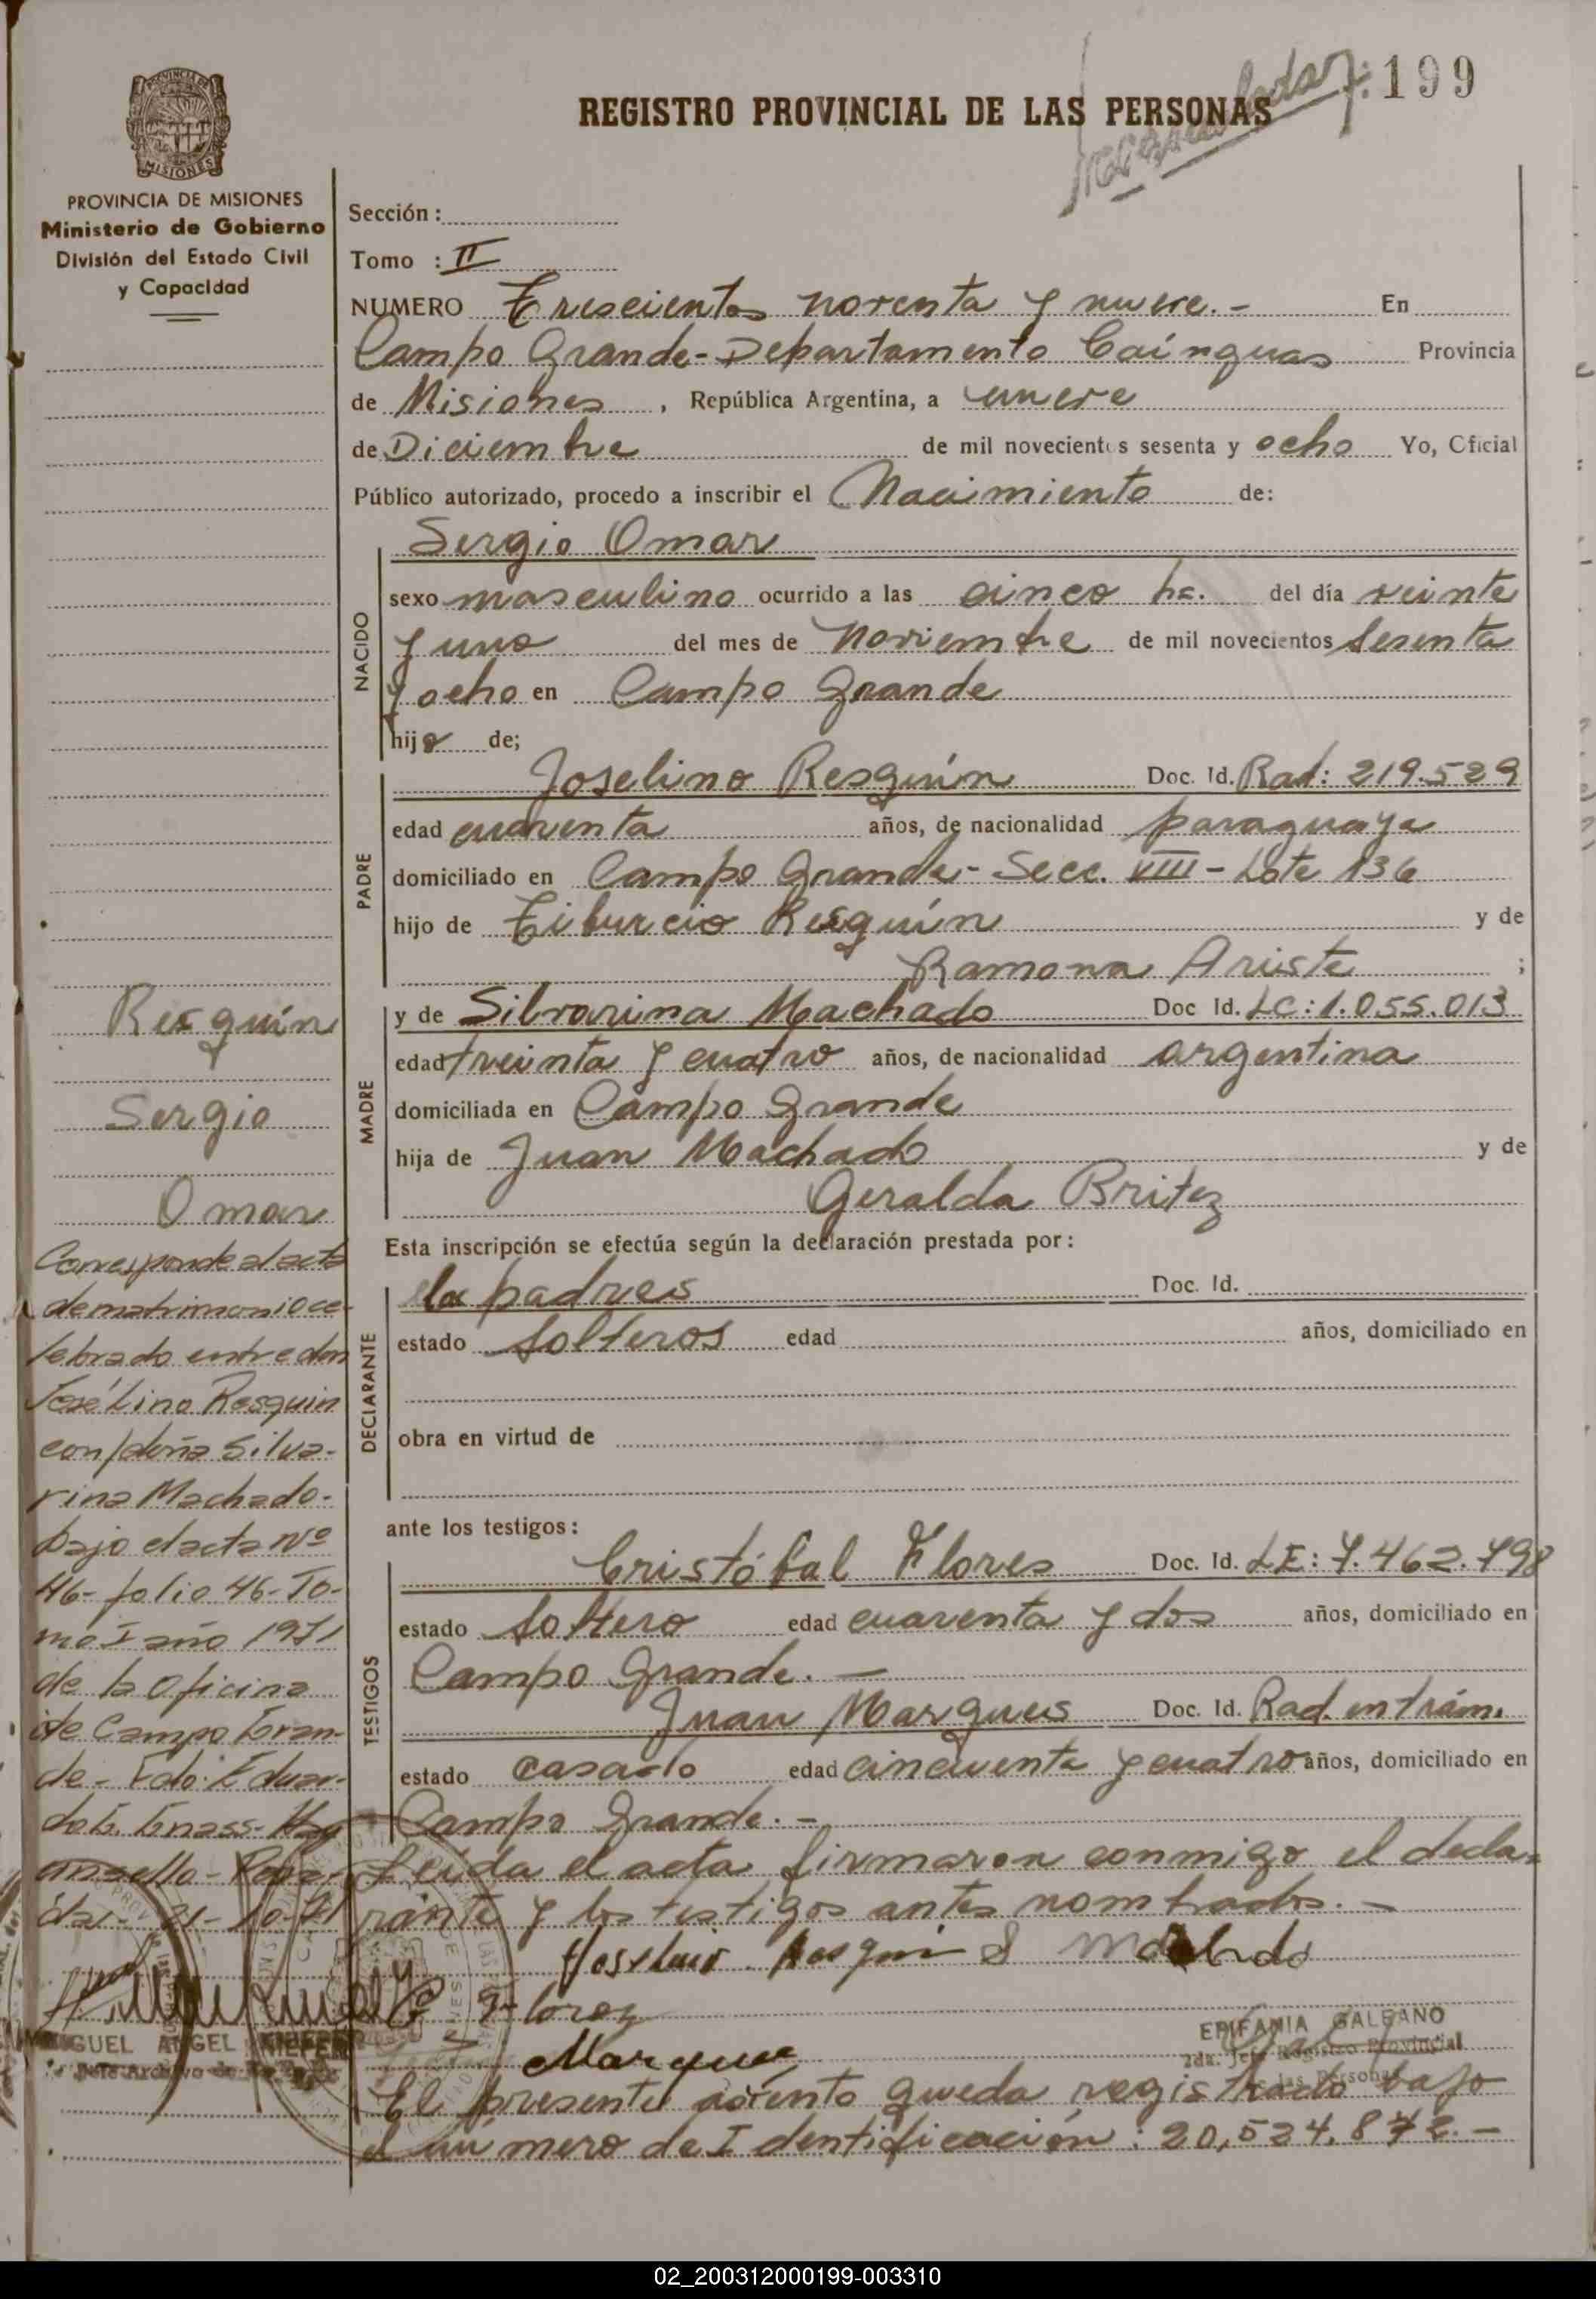 199
REGISTRO PROVINCIAL DE LAS PERSONAS
PROVINCIA DE MISIONES
Ministerio de Gobierno
División del Estado Civil
y Capacidad
Sección :
Tomo : II
NUMERO Trescientos noventa y nueve.- En
Campo Grande-Departamento Cainguas Provincia
de Misiones, República Argentina, a nueve
de Diciembre de mil novecientos sesenta y ocho Yo, Oficial
Público autorizado, procedo a inscribir el Nacimiento de:
NACIDO
Sergio Omar
sexo masculino ocurrido a las cinco hs. del día veinte
y uno del mes de Noviembre de mil novecientos sesenta
y ocho en Campo Grande
hijo de;
PADRE
Joselino Resquín Doc. Id. Rad: 219.529
edad cuarenta años, de nacionalidad paraguaya
domiciliado en Campo Grande- Secc. VIII - Lote 136
hijo de Tiburcio Resquín y de
Ramona Ariste ;
MADRE
y de Silvarina Machado Doc Id. LC: 1.055.013
edad treinta y cuatro años, de nacionalidad argentina
domiciliada en Campo Grande
hija de Juan Machado y de
Geralda Britez
Esta inscripción se efectúa según la declaración prestada por :
DECLARANTE
los padres Doc. Id.
estado solteros edad años, domiciliado en
obra en virtud de
ante los testigos :
TESTIGOS
Cristóbal Flores Doc. Id. LE: 7.462.798
estado soltero edad cuarenta y dos años, domiciliado en
Campo Grande. -
Juan Marques Doc. Id. Rad. en trám.
estado casado edad cincuenta y cuatro años, domiciliado en
Campo Grande. -
Leida el acta firmaron conmigo el decla-
rante y los testigos antes nombrados. -
S Machado
C Flores
Marques
EPIFANIA GALEANO
2da. Jefe Registro Provincial
de las Personas
El presente asiento queda registrado bajo
el número de Identificación: 20,524,872.-
Resquín
Sergio
Omar
Corresponde al acta
de matrimonio ce-
lebrado entre don
José Lino Resquin
con doña Silva-
rina Machado-
bajo el acta Nº
46- folio 46- To-
mo I año 1971
de la Oficina
de Campo Gran-
de- Fdo: Eduar-
do
21-10-71
MIGUEL ANGEL KIEFER
Jefe Archivo
02_200312000199-003310